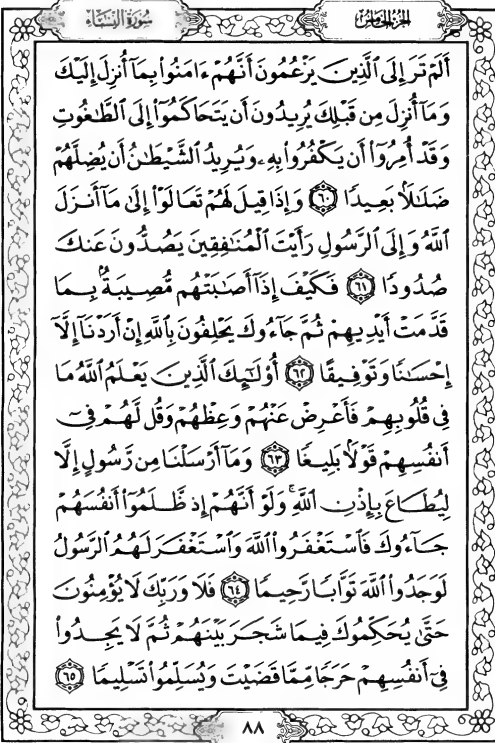 سُورَةُ النِّسَاءِ
الجزء الخامس
أَلَمْ تَرَ إِلَى ٱلَّذِينَ يَزْعُمُونَ أَنَّهُمْ ءَامَنُوا۟ بِمَآ أُنزِلَ إِلَيْكَ
وَمَآ أُنزِلَ مِن قَبْلِكَ يُرِيدُونَ أَن يَتَحَاكَمُوٓا۟ إِلَى ٱلطَّـٰغُوتِ
وَقَدْ أُمِرُوٓا۟ أَن يَكْفُرُوا۟ بِهِۦ وَيُرِيدُ ٱلشَّيْطَـٰنُ أَن يُضِلَّهُمْ
ضَلَـٰلًۢا بَعِيدًا ٦٠ وَإِذَا قِيلَ لَهُمْ تَعَالَوْا۟ إِلَىٰ مَآ أَنزَلَ
ٱللَّهُ وَإِلَى ٱلرَّسُولِ رَأَيْتَ ٱلْمُنَـٰفِقِينَ يَصُدُّونَ عَنكَ
صُدُودًا ٦١ فَكَيْفَ إِذَآ أَصَـٰبَتْهُم مُّصِيبَةٌۢ بِمَا
قَدَّمَتْ أَيْدِيهِمْ ثُمَّ جَآءُوكَ يَحْلِفُونَ بِٱللَّهِ إِنْ أَرَدْنَآ إِلَّآ
إِحْسَـٰنًا وَتَوْفِيقًا ٦٢ أُو۟لَـٰٓئِكَ ٱلَّذِينَ يَعْلَمُ ٱللَّهُ مَا
فِى قُلُوبِهِمْ فَأَعْرِضْ عَنْهُمْ وَعِظْهُمْ وَقُل لَّهُمْ فِىٓ
أَنفُسِهِمْ قَوْلًۢا بَلِيغًا ٦٣ وَمَآ أَرْسَلْنَا مِن رَّسُولٍ إِلَّا
لِيُطَاعَ بِإِذْنِ ٱللَّهِ ۚ وَلَوْ أَنَّهُمْ إِذ ظَّلَمُوٓا۟ أَنفُسَهُمْ
جَآءُوكَ فَٱسْتَغْفَرُوا۟ ٱللَّهَ وَٱسْتَغْفَرَ لَهُمُ ٱلرَّسُولُ
لَوَجَدُوا۟ ٱللَّهَ تَوَّابًا رَّحِيمًا ٦٤ فَلَا وَرَبِّكَ لَا يُؤْمِنُونَ
حَتَّىٰ يُحَكِّمُوكَ فِيمَا شَجَرَ بَيْنَهُمْ ثُمَّ لَا يَجِدُوا۟
فِىٓ أَنفُسِهِمْ حَرَجًا مِّمَّا قَضَيْتَ وَيُسَلِّمُوا۟ تَسْلِيمًا ٦٥
٨٨